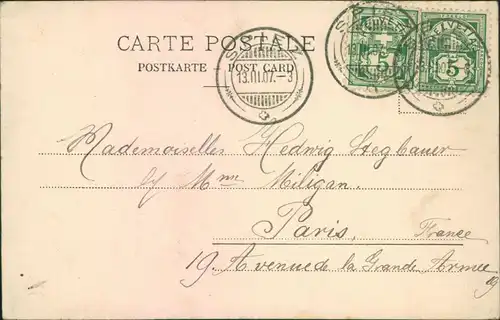 CARTE POSTALE
POSTKARTE POST CARD
13.III.07.-3
HELVETIA
5 5
Mademoiselles Hedwig Stegbauer
c/ Mme Miligan.
Paris, France
19. Avenue de la Grande Armée
19